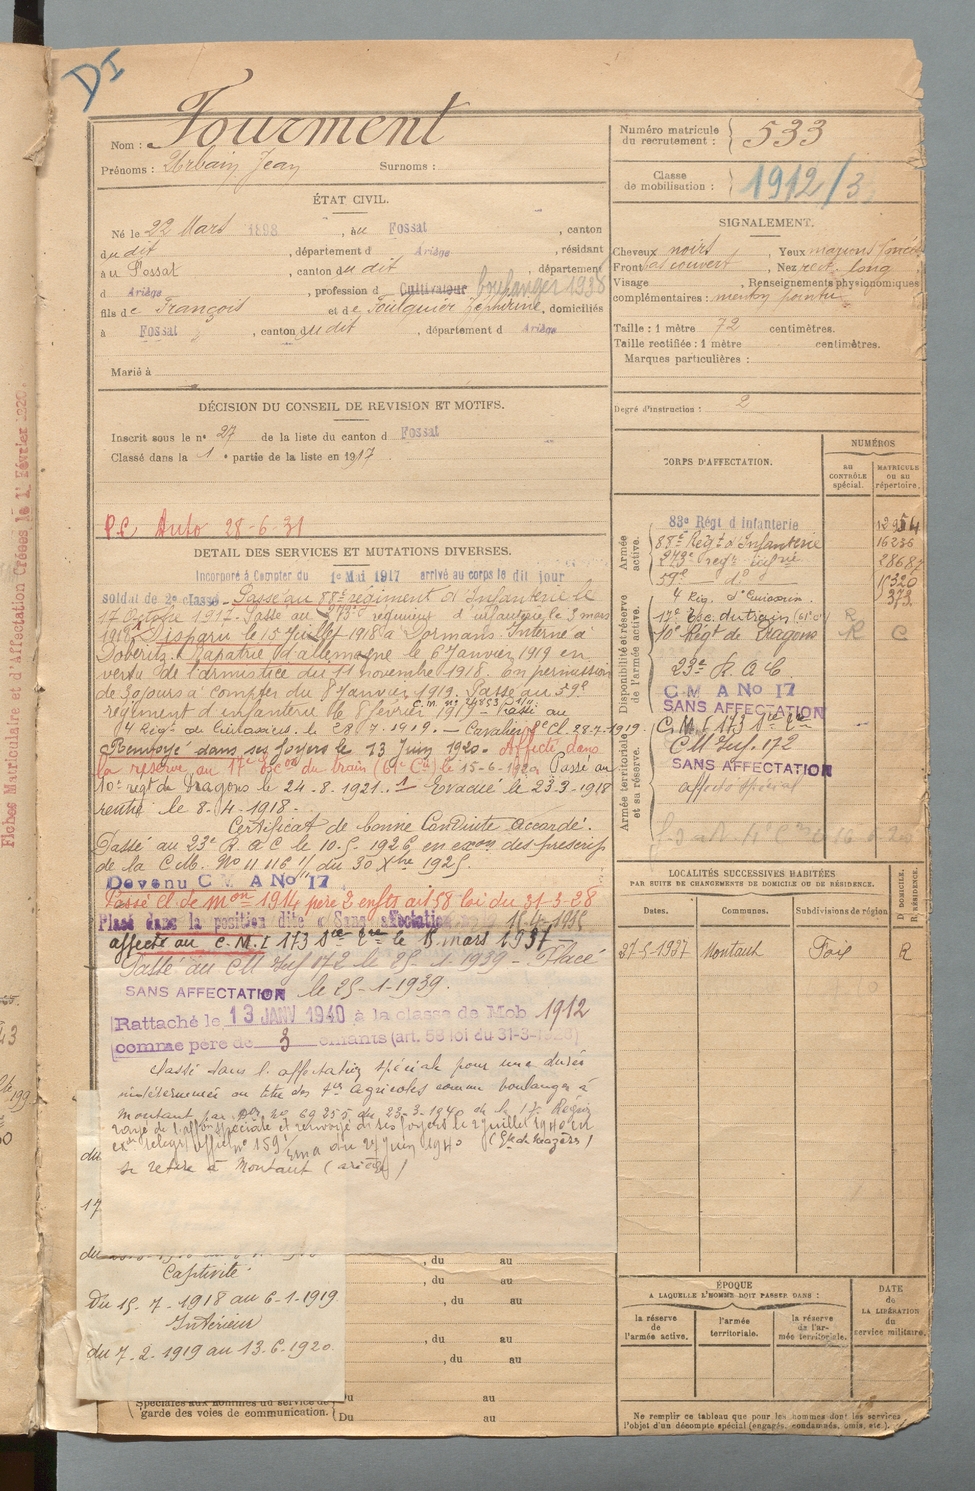 DI
Nom : Fourment
Prénoms : Urbain Jean Surnoms :
Numéro matricule du recrutement : 533
Classe de mobilisation : 1912/3
ÉTAT CIVIL.
Né le 22 Mars 1898, au Fossat, canton
dudit, département d Ariège, résidant
à u Fossat, canton dudit, département
d Ariège, profession d Cultivateur boulanger 1938
fils de François et de Foulquier Zéphirine, domiciliés
à Fossat, canton dudit, département d Ariège
Marié à
SIGNALEMENT.
Cheveux noirs, Yeux marrons foncés
Front bas couvert, Nez rect. long
Visage , Renseignements physionomiques
complémentaires : menton pointu
Taille : 1 mètre 72 centimètres.
Taille rectifiée : 1 mètre centimètres.
Marques particulières :
Degré d'instruction : 2
DÉCISION DU CONSEIL DE REVISION ET MOTIFS.
Inscrit sous le n° 27 de la liste du canton d Fossat
Classé dans la 1e partie de la liste en 1917
P.C. Auto 28-6-31
DETAIL DES SERVICES ET MUTATIONS DIVERSES.
Incorporé à Compter du 1er Mai 1917 arrivé au corps le dit jour
soldat de 2e classe. Passé au 88e régiment d'Infanterie le
17 Octobre 1917. Passé au 273e régiment d'infanterie le 3 mars
1918. Disparu le 15 Juillet 1918 à Dormans. Interné à
Doberitz. Rapatrié d'allemagne le 6 Janvier 1919 en
vertu de l'armistice du 11 novembre 1918. En permission
de 30 jours à compter du 8 Janvier 1919. Passé au 59e
régiment d'infanterie le 8 février 1919 - Passé au
4 Rég. de Cuirassiers. le 28.7.1919. - Cavalier 2e Cl. 28-7-1919.
Renvoyé dans ses foyers le 13 Juin 1920. Affecté dans
la réserve au 17e Esc on du train (61e Cie) le 15-6-1920 Passé au
10e régt de Dragons le 24-8-1921. - Evacué le 23-3-1918
rentré le 8-4-1918.
Certificat de bonne Conduite accordé.
Passé au 23e R.A.C le 10.5.1926 en exon des prescrip
de la C.M. No 11116 1/1 du 30 Xbre 1925
Devenu C M A No 17
Passé cl de mon 1914 père 2 enfts art 58 loi du 31-3-28
Placé dans la position dite "Sans affectation
affecté au C.M.I 173 le 15 mars 1937
Passé au CM Inf 172 le 25-1-1939 - Placé
SANS AFFECTATION le 25-1-1939.
Rattaché le 13 JANV 1940 à la classe de Mob 1912
comme père de 3 enfants (art. 58 loi du 31-3-1928)
Classé dans l'affectation spéciale pour une durée
indéterminée au titre des agricoles comme boulanger à
Montaut par 69255 du 23-3-1940 de la 17e Région
rayé de l'affon spéciale et renvoyé dans ses foyers le 2 juillet 1940 en
n° 159 / EMA du 27 Juin 1940
se retire à Montaut (ariège)
du
17
du
Captivité
Du 15-7-1918 au 6-1-1919
Intérieur
du 7-2-1919 au 13-6-1920
, du au
, du au
, du au
, du au
, du au
Du au
Spéciales aux hommes du service de
garde des voies de communication. Du au
CORPS D'AFFECTATION.
NUMÉROS
au CONTRÔLE spécial.
MATRICULE ou au répertoire.
Armée active.
83e Régt d'infanterie
88e Régt d'Infanterie 16236
273e régt infrie 28687
59e do 15320
4 Rég. d'Cuirassiers. 373
Disponibilité et réserve de l'armée active.
17e Esc. du train (61e Cie) R
10e Régt de Dragons R C
23e R.A.C
C M A No 17
SANS AFFECTATION
Armée territoriale et sa réserve.
C.M.I 173
CM Inf. 172
SANS AFFECTATION
affecté spécial
LOCALITÉS SUCCESSIVES HABITÉES
PAR SUITE DE CHANGEMENTS DE DOMICILE OU DE RÉSIDENCE.
Dates. Communes. Subdivisions de région D. DOMICILE. R. RÉSIDENCE.
27-5-1937 Montaut Foix R
ÉPOQUE
A LAQUELLE L'HOMME DOIT PASSER DANS :
la réserve de l'armée active.
l'armée territoriale.
la réserve de l'armée territoriale.
DATE de LA LIBÉRATION du service militaire.
Ne remplir ce tableau que pour les hommes dont les services
l'objet d'un décompte spécial (engagés, condamnés, omis, etc.).
Fiches Matriculaire et d'Affectation Créées le 1er Février 1920.